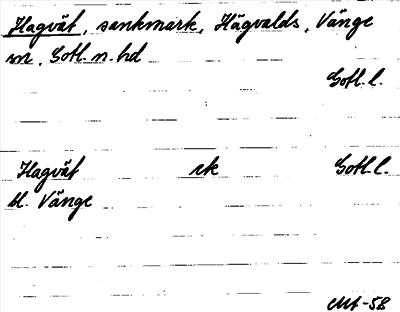 Hagvät, sankmark, Hägvalds, Vänge
sn, Gotl. n. hd
Gotl. l.
Hagvät rk Gotl. l.
bl. Vänge
-58